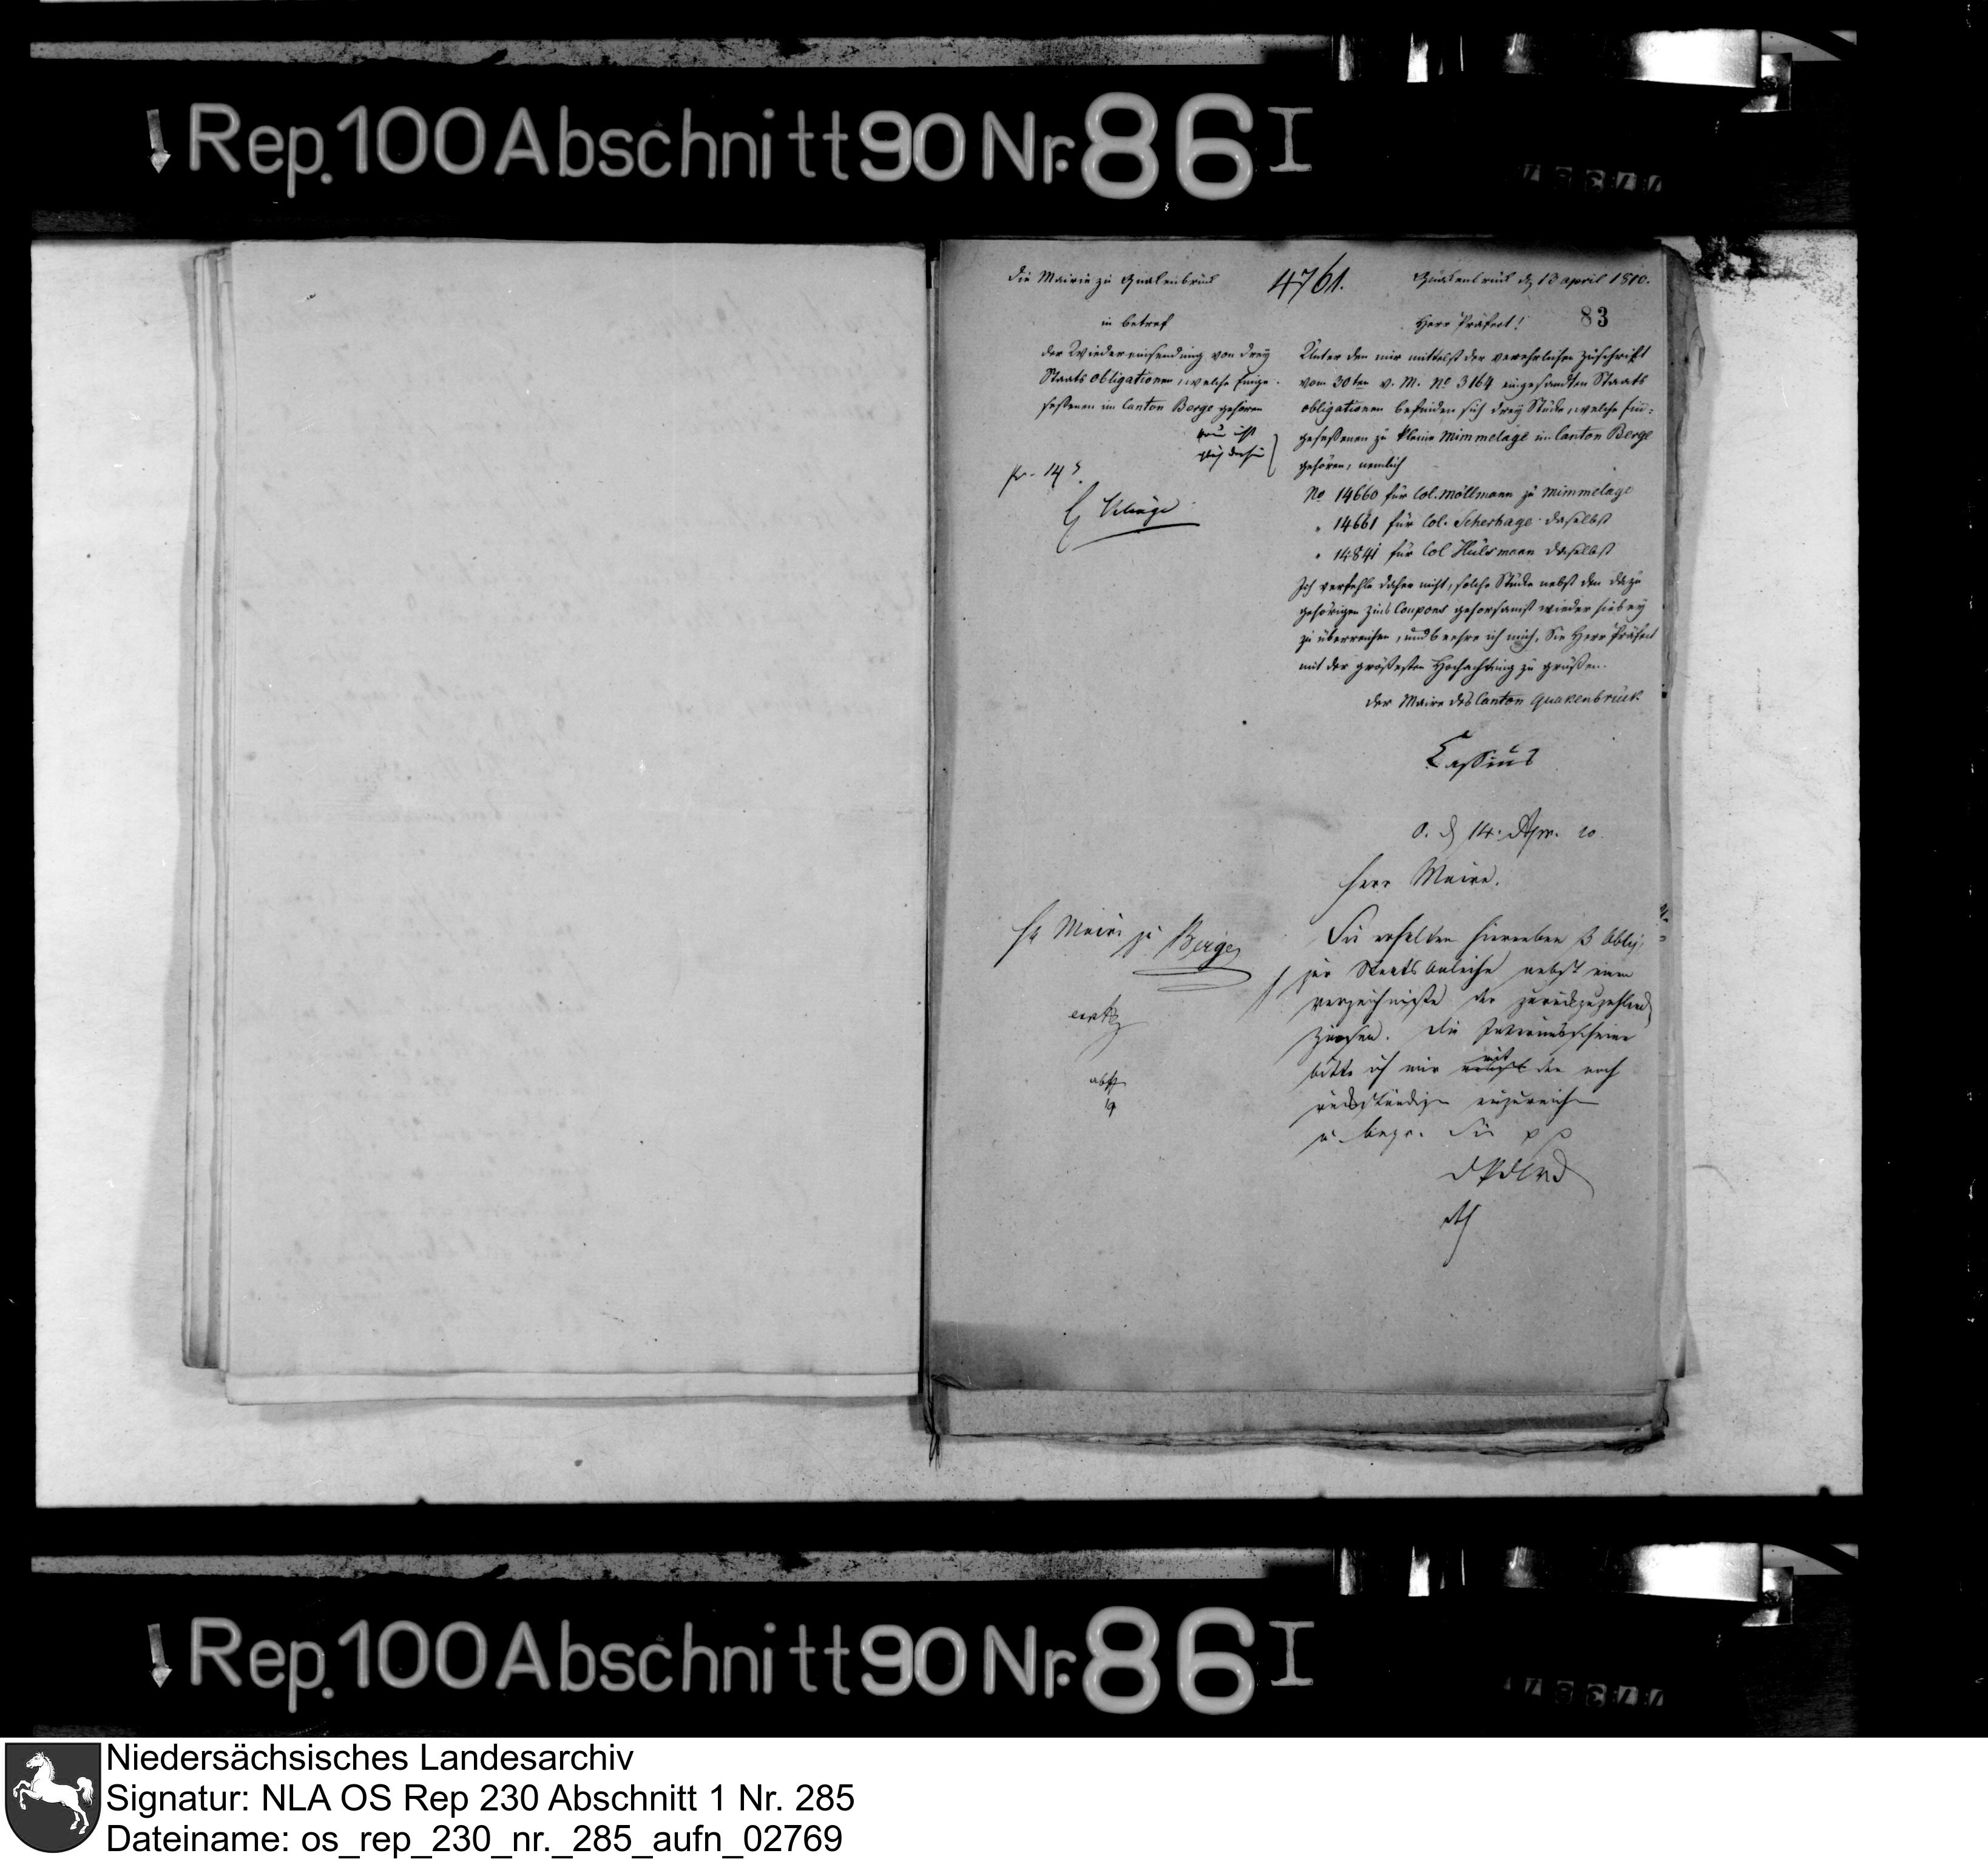 Rep. 100 Abschnitt 90 Nr. 86 I
Die Mairie zu Quakenbrück
4761.
Quakenbrück d 13 april 1810.
83
in betref
der Wiedereinsendung von drey
Staats obligationen, welche Einge-
seßenen im Canton Berge gehören
pr. 14
Herr Präfect!
Unter den mir mittelst der verehrlichen Zuschrift
vom 30ten v. M. No 3164 eingesandten Staats
obligationen befinden sich drey Stücke, welche Ein=
geseßenen zu kleine Mimmelage im Canton Berge
gehören, nemlich
No 14660 für Col. Möllmann zu Mimmelage
" 14661 für Col. Scherhage daselbst
" 14841 für Col Hülsmann daselbst
Ich verfehle daher nicht, solche Stücke nebst den dazu
gehörigen Zins Coupons gehorsamst wieder hiebey
zu überreichen, und beehre ich mich, Sie Herr Präfect
mit der größesten Hochachtung zu grüßen.
Der Maire des Canton Quakenbrück
Cassius
O. d 14. Apr. 10.
Herr Maire.
H Maire zu Berge
Sie erhalten hierneben 3 Oblig.
zur Staats Anleihe nebst einem
Verzeichniße der zurückzuzahlend
Zinsen. Die Interimsscheine
bitte ich mir mit den noch
rückständigen einzureichen
u. Sie pp
Rep. 100 Abschnitt 90 Nr. 86 I
Niedersächsisches Landesarchiv
Signatur: NLA OS Rep 230 Abschnitt 1 Nr. 285
Dateiname: os_rep_230_nr._285_aufn_02769